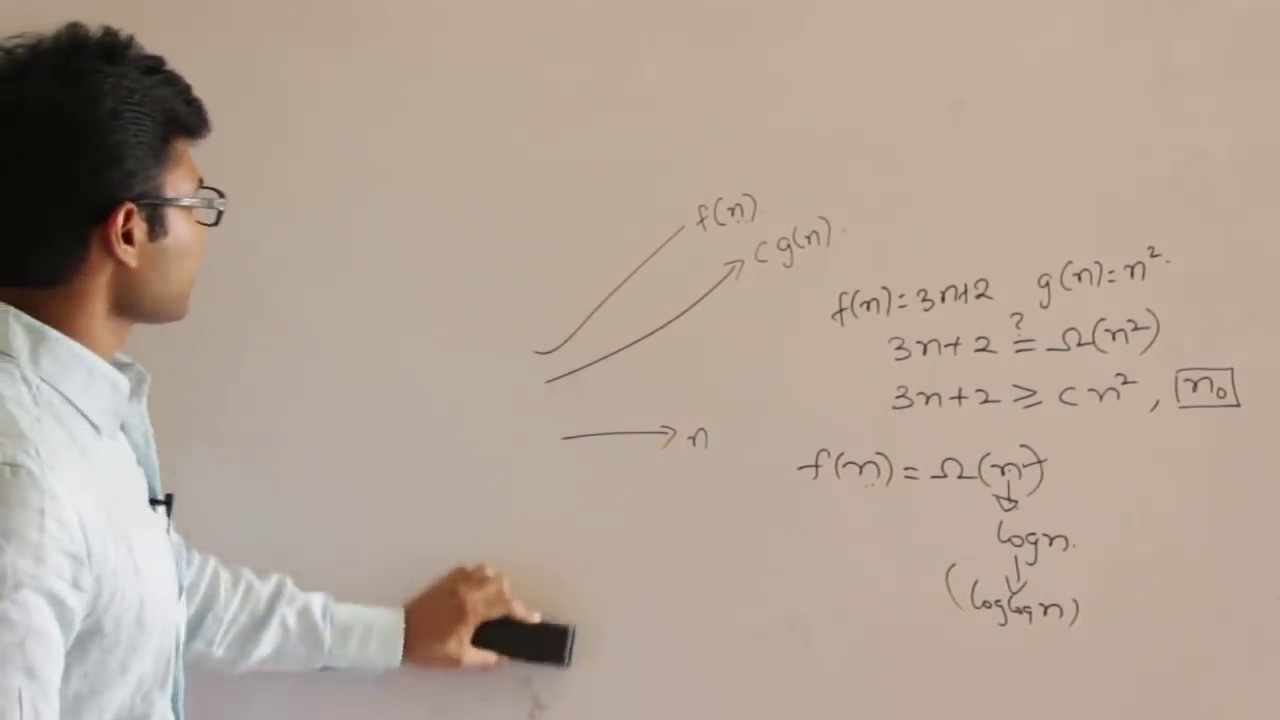 f(n)
c g(n).
n
f(n) = 3n+2 g(n) = n².
3n+2 ≟ Ω(n²)
3n+2 ≥ c n², n₀
f(n) = Ω(n)
logn.
(loglogn)